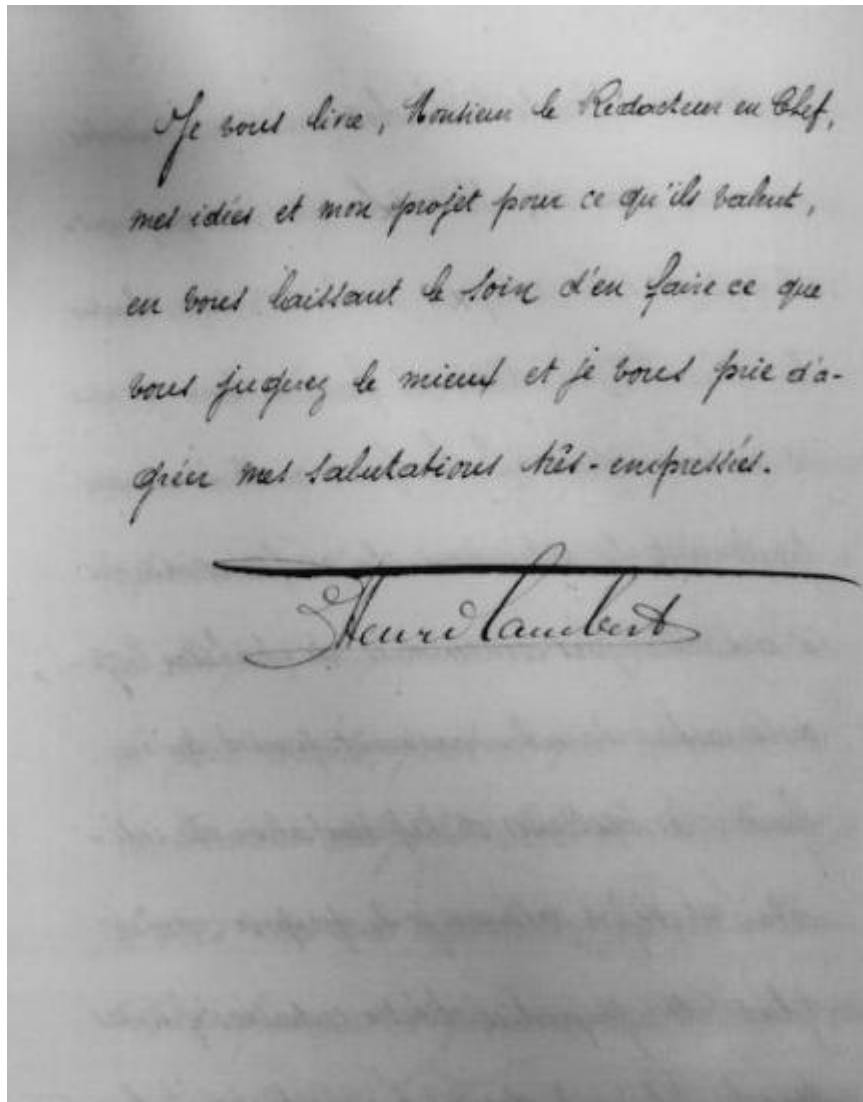 Je vous livre, Monsieur le Rédacteur en Chef,
mes idées et mon projet pour ce qu'ils valent,
en vous laissant le soin d'en faire ce que
vous jugerez le mieux et je vous prie d'a-
gréer mes salutations très-empressées.
Henri Lambert